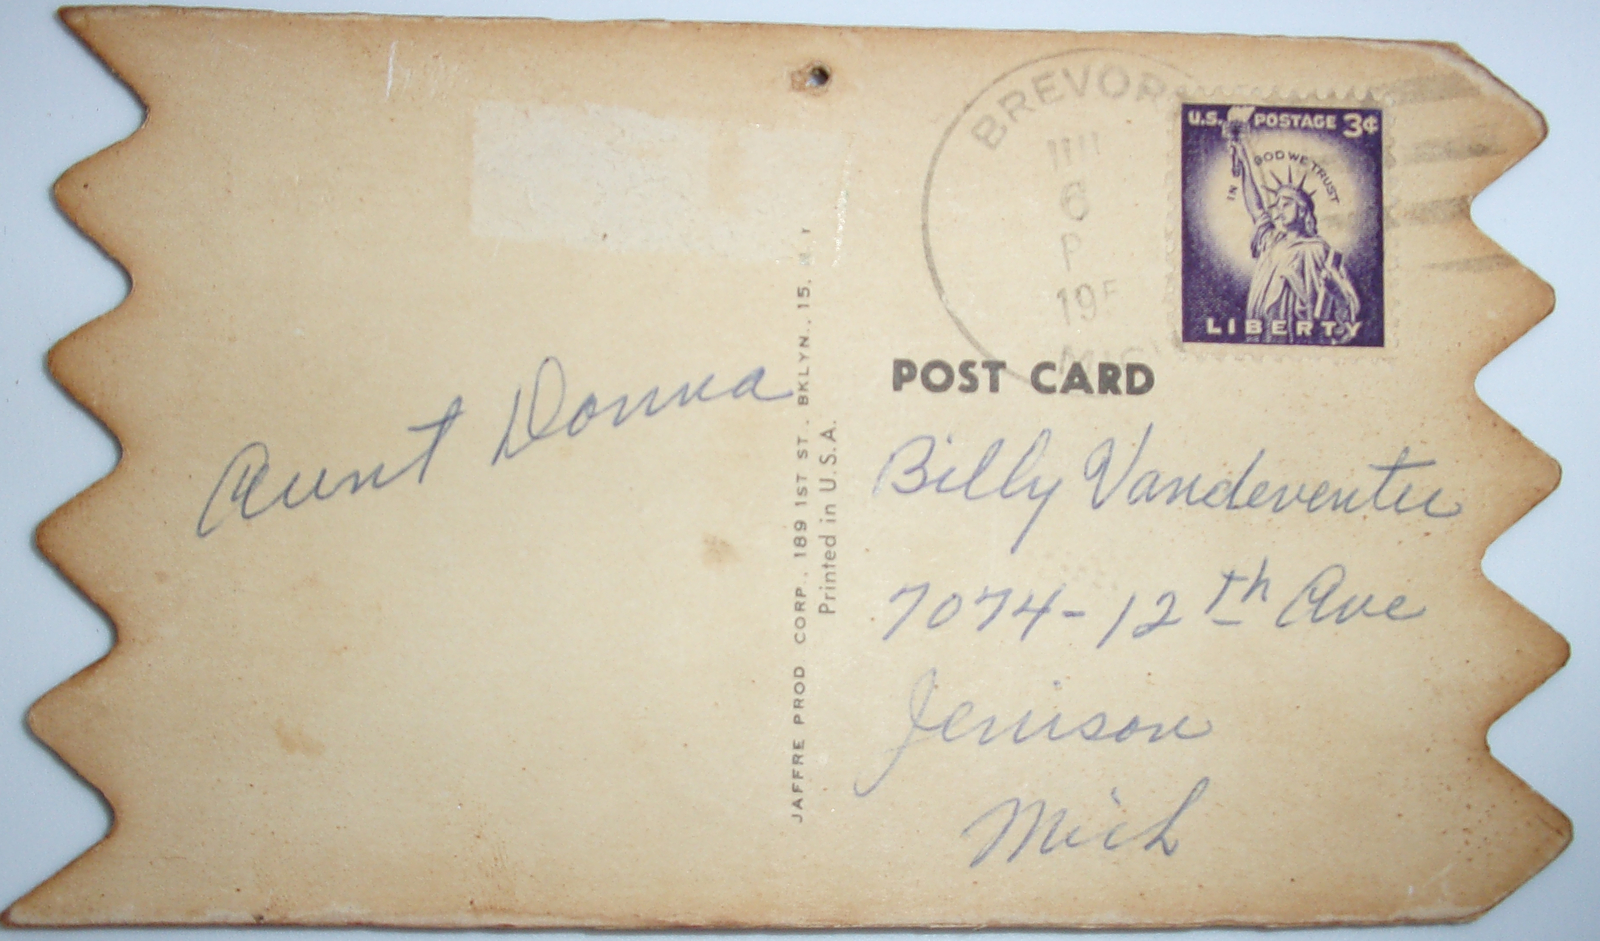 Aunt Donna
JAFFRE PROD CORP., 189 1ST ST., BKLYN., 15,
Printed in U.S.A.
BREVOR
6
P
U.S. POSTAGE 3¢
IN GOD WE TRUST
LIBERTY
POST CARD
Billy Vandeventer
7074-12th Ave
Jenison
Mich